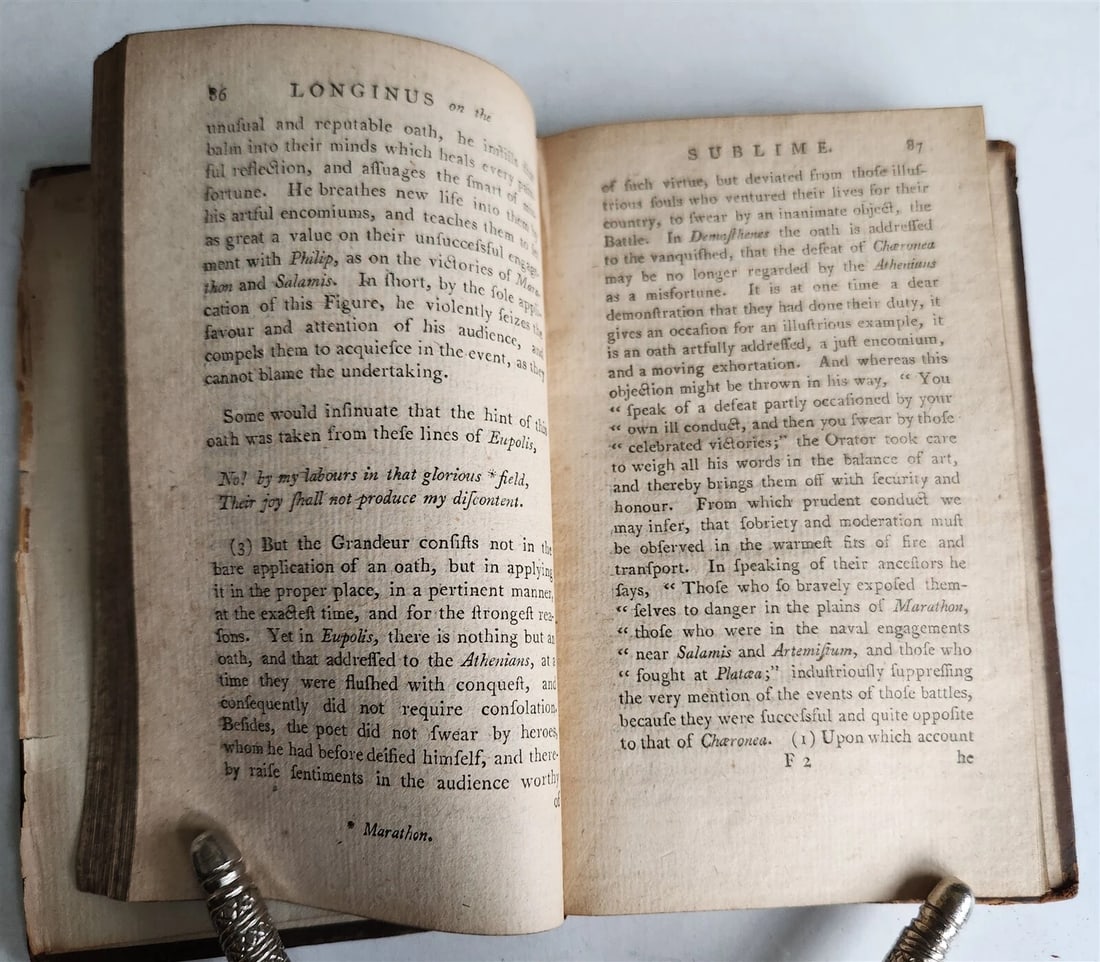 86 LONGINUS on the
unuſual and reputable oath, he inſtills that
balm into their minds which heals every pain-
ful reflection, and aſſuages the ſmart of miſ-
fortune. He breathes new life into them by
his artful encomiums, and teaches them to ſet
as great a value on their unſucceſsful engage-
ment with Philip, as on the victories of Mara-
thon and Salamis. In ſhort, by the ſole appli-
cation of this Figure, he violently ſeizes the
favour and attention of his audience, and
compels them to acquieſce in the event, as they
cannot blame the undertaking.
Some would inſinuate that the hint of this
oath was taken from theſe lines of Eupolis,
No! by my labours in that glorious * field,
Their joy ſhall not produce my diſcontent.
(3) But the Grandeur conſiſts not in the
bare application of an oath, but in applying
it in the proper place, in a pertinent manner,
at the exacteſt time, and for the ſtrongeſt rea-
ſons. Yet in Eupolis, there is nothing but an
oath, and that addreſſed to the Athenians, at a
time they were fluſhed with conqueſt, and
conſequently did not require conſolation.
Beſides, the poet did not ſwear by heroes,
whom he had before deified himſelf, and there-
by raiſe ſentiments in the audience worthy
of
* Marathon.
SUBLIME. 87
of ſuch virtue, but deviated from thoſe illuſ-
trious ſouls who ventured their lives for their
country, to ſwear by an inanimate object, the
Battle. In Demoſthenes the oath is addreſſed
to the vanquiſhed, that the defeat of Chæronea
may be no longer regarded by the Athenians
as a misfortune. It is at one time a dear
demonſtration that they had done their duty, it
gives an occaſion for an illuſtrious example, it
is an oath artfully addreſſed, a juſt encomium,
and a moving exhortation. And whereas this
objection might be thrown in his way, “ You
“ ſpeak of a defeat partly occaſioned by your
“ own ill conduct, and then you ſwear by thoſe
“ celebrated victories;” the Orator took care
to weigh all his words in the balance of art,
and thereby brings them off with ſecurity and
honour. From which prudent conduct we
may infer, that ſobriety and moderation muſt
be obſerved in the warmeſt fits of fire and
tranſport. In ſpeaking of their anceſtors he
ſays, “ Thoſe who ſo bravely expoſed them-
“ ſelves to danger in the plains of Marathon,
“ thoſe who were in the naval engagements
“ near Salamis and Artemiſium, and thoſe who
“ fought at Platæa;” induſtriouſly ſuppreſſing
the very mention of the events of thoſe battles,
becauſe they were ſucceſsful and quite oppoſite
to that of Chæronea. (1) Upon which account
F 2 he